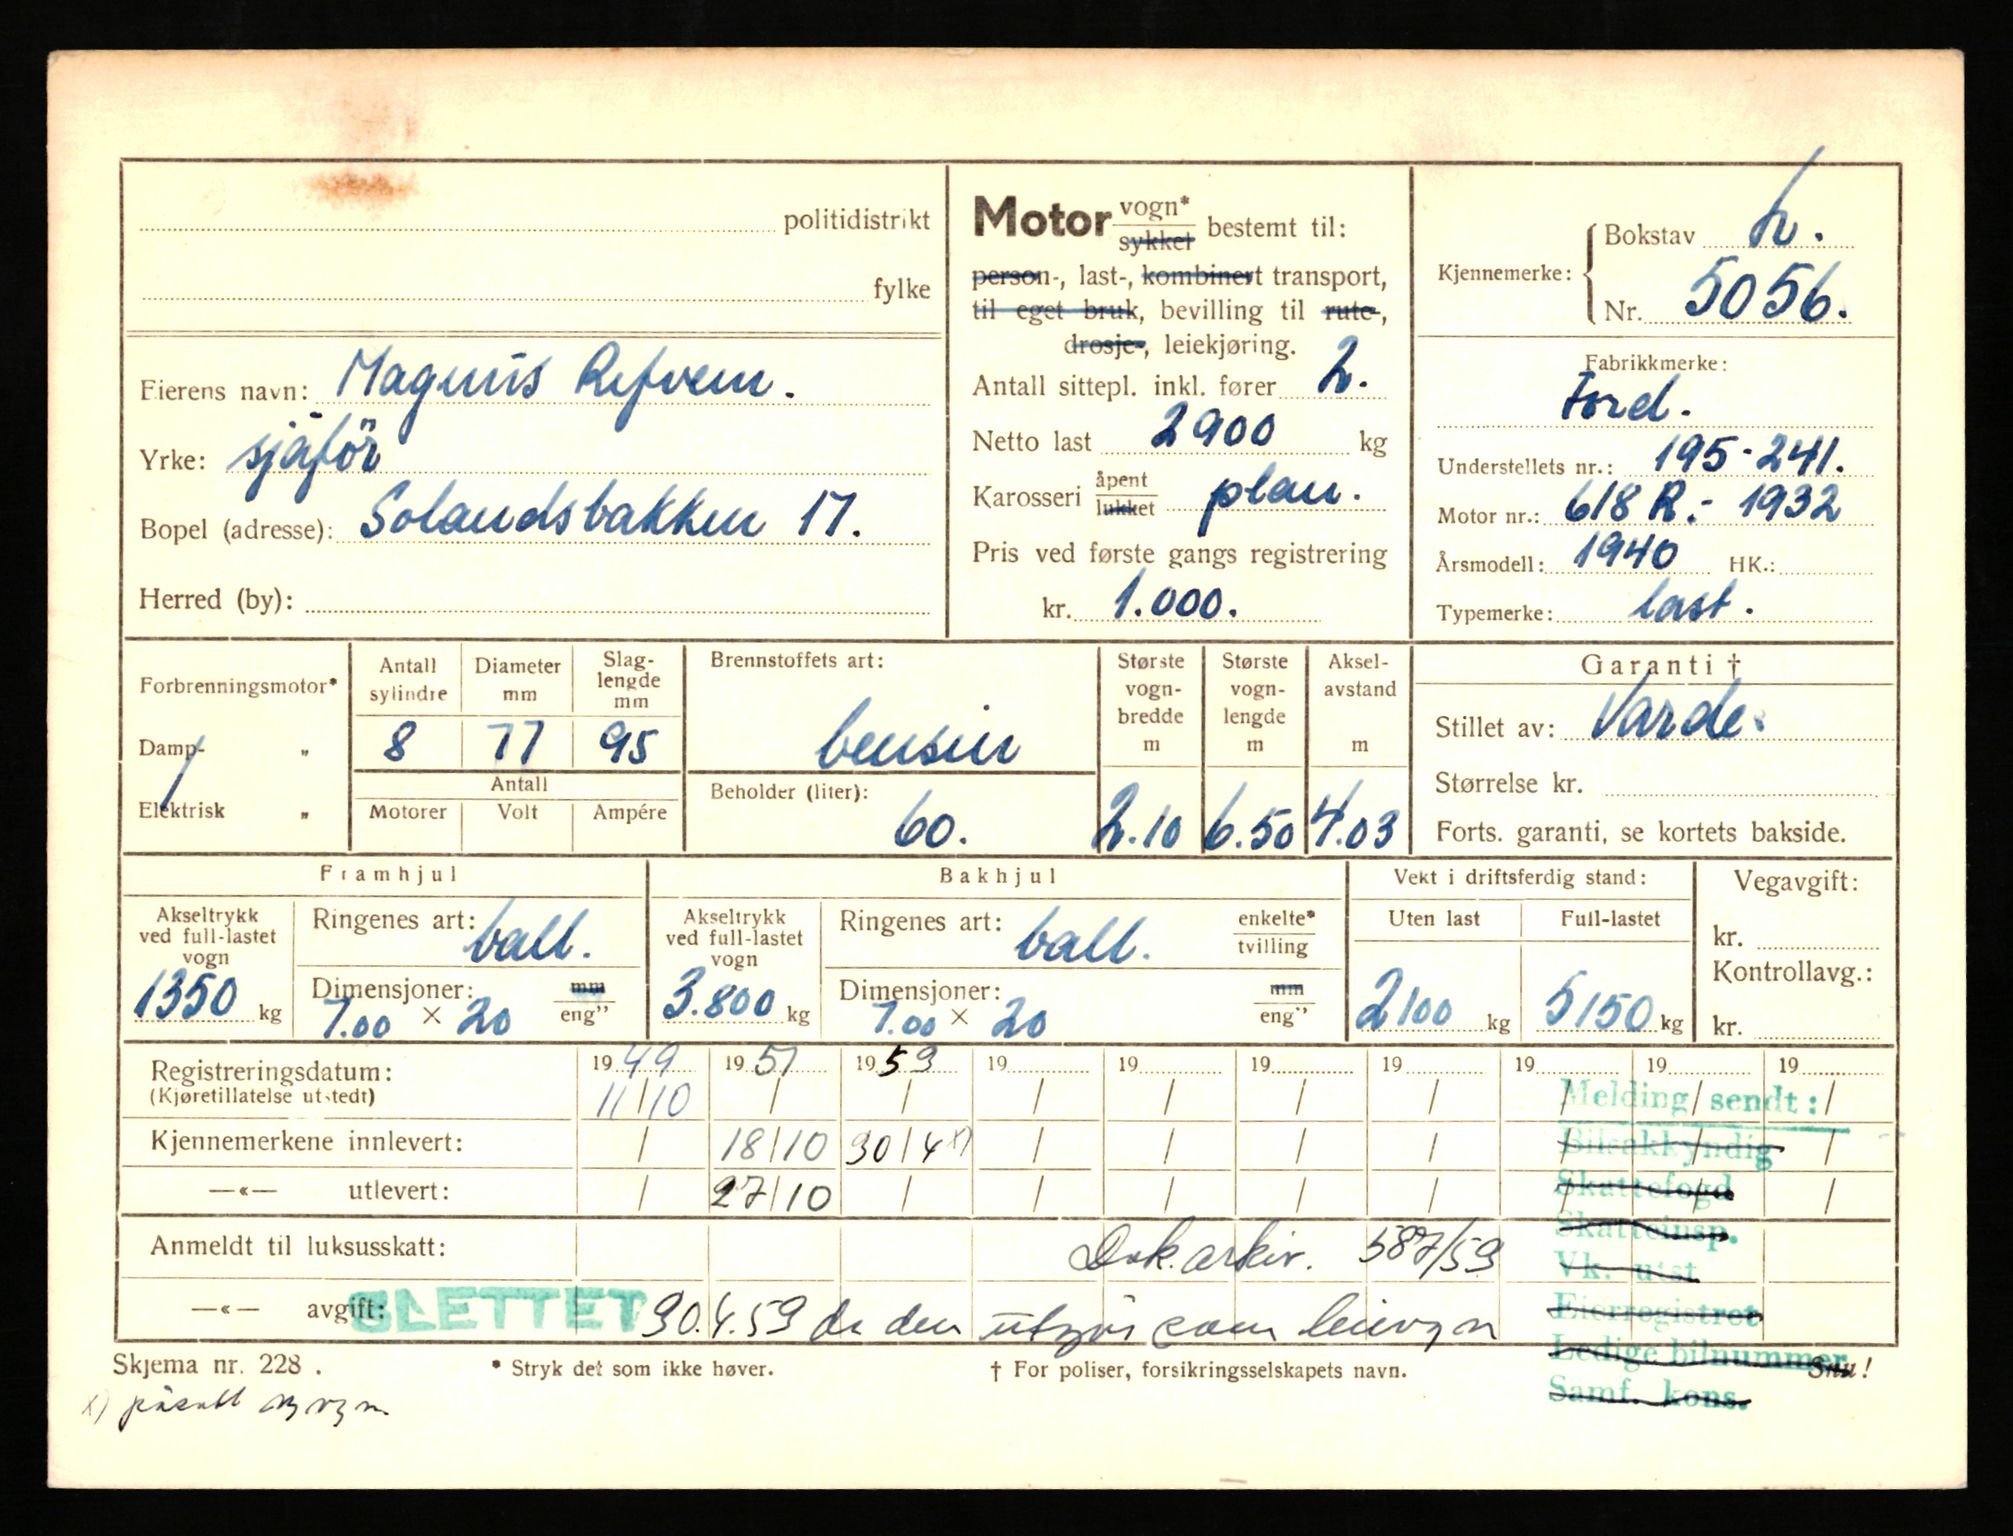 politidistrikt
fylke
Eierens navn: Magnus Refvem.
Yrke: sjåför
Bopel (adresse): Solandsbakken 17.
Herred (by):
Motor vogn* sykkel bestemt til:
person-, last-, kombinert transport,
til eget bruk, bevilling til rute-,
drosje-, leiekjøring.
Antall sittepl. inkl. fører 2.
Netto last 2900 kg
Karosseri åpent lukket plan.
Pris ved første gangs registrering
kr. 1.000.
Kjennemerke: Bokstav h.
Nr. 5056.
Fabrikkmerke:
Ford.
Understellets nr.: 195-241.
Motor nr.: 618 R.- 1932
Årsmodell: 1940 HK.:
Typemerke: last.
Forbrenningsmotor*
Damp- "
Elektrisk "
Antall sylindre Diameter mm Slag-lengde mm
8 77 95
Antall
Motorer Volt Ampére
Brennstoffets art:
bensin
Beholder (liter):
60.
Største vogn-bredde m 2.10
Største vogn-lengde m 6.50
Aksel-avstand m 4.03
Garanti †
Stillet av: Varde.
Størrelse kr.
Forts. garanti, se kortets bakside.
Framhjul
Akseltrykk ved full-lastet vogn
1350 kg
Ringenes art: ball.
Dimensjoner: mm
7.00 × 20 eng"
Bakhjul
Akseltrykk ved full-lastet vogn
3.800 kg
Ringenes art: ball. enkelte* tvilling
Dimensjoner: mm
7.00 × 20 eng"
Vekt i driftsferdig stand:
Uten last Full-lastet
2100 kg 5150 kg
Vegavgift:
kr.
Kontrollavg.:
kr.
Registreringsdatum: 1949 1951 1959 19 19 19 19 19 19 19
(Kjøretillatelse utstedt) 11/10 / / / / / / / / /
Kjennemerkene innlevert: / 18/10 30/4 x) / / / / / / /
—«— utlevert: / 27/10 / / / / / / / /
Anmeldt til luksusskatt: Dok.arkiv. 587/59
—«— avgift: SLETTET 30.4.59 da den utgår som leievgn
Melding sendt:
Bilsakkyndig
Skattefogd
Skatteinsp.
Vk. utst
Eierregistret
Ledige bilnummer
Samf. kons.
Skjema nr. 228.
* Stryk det som ikke høver.
† For poliser, forsikringsselskapets navn.
Snu!
x) påsatt ny vgn.